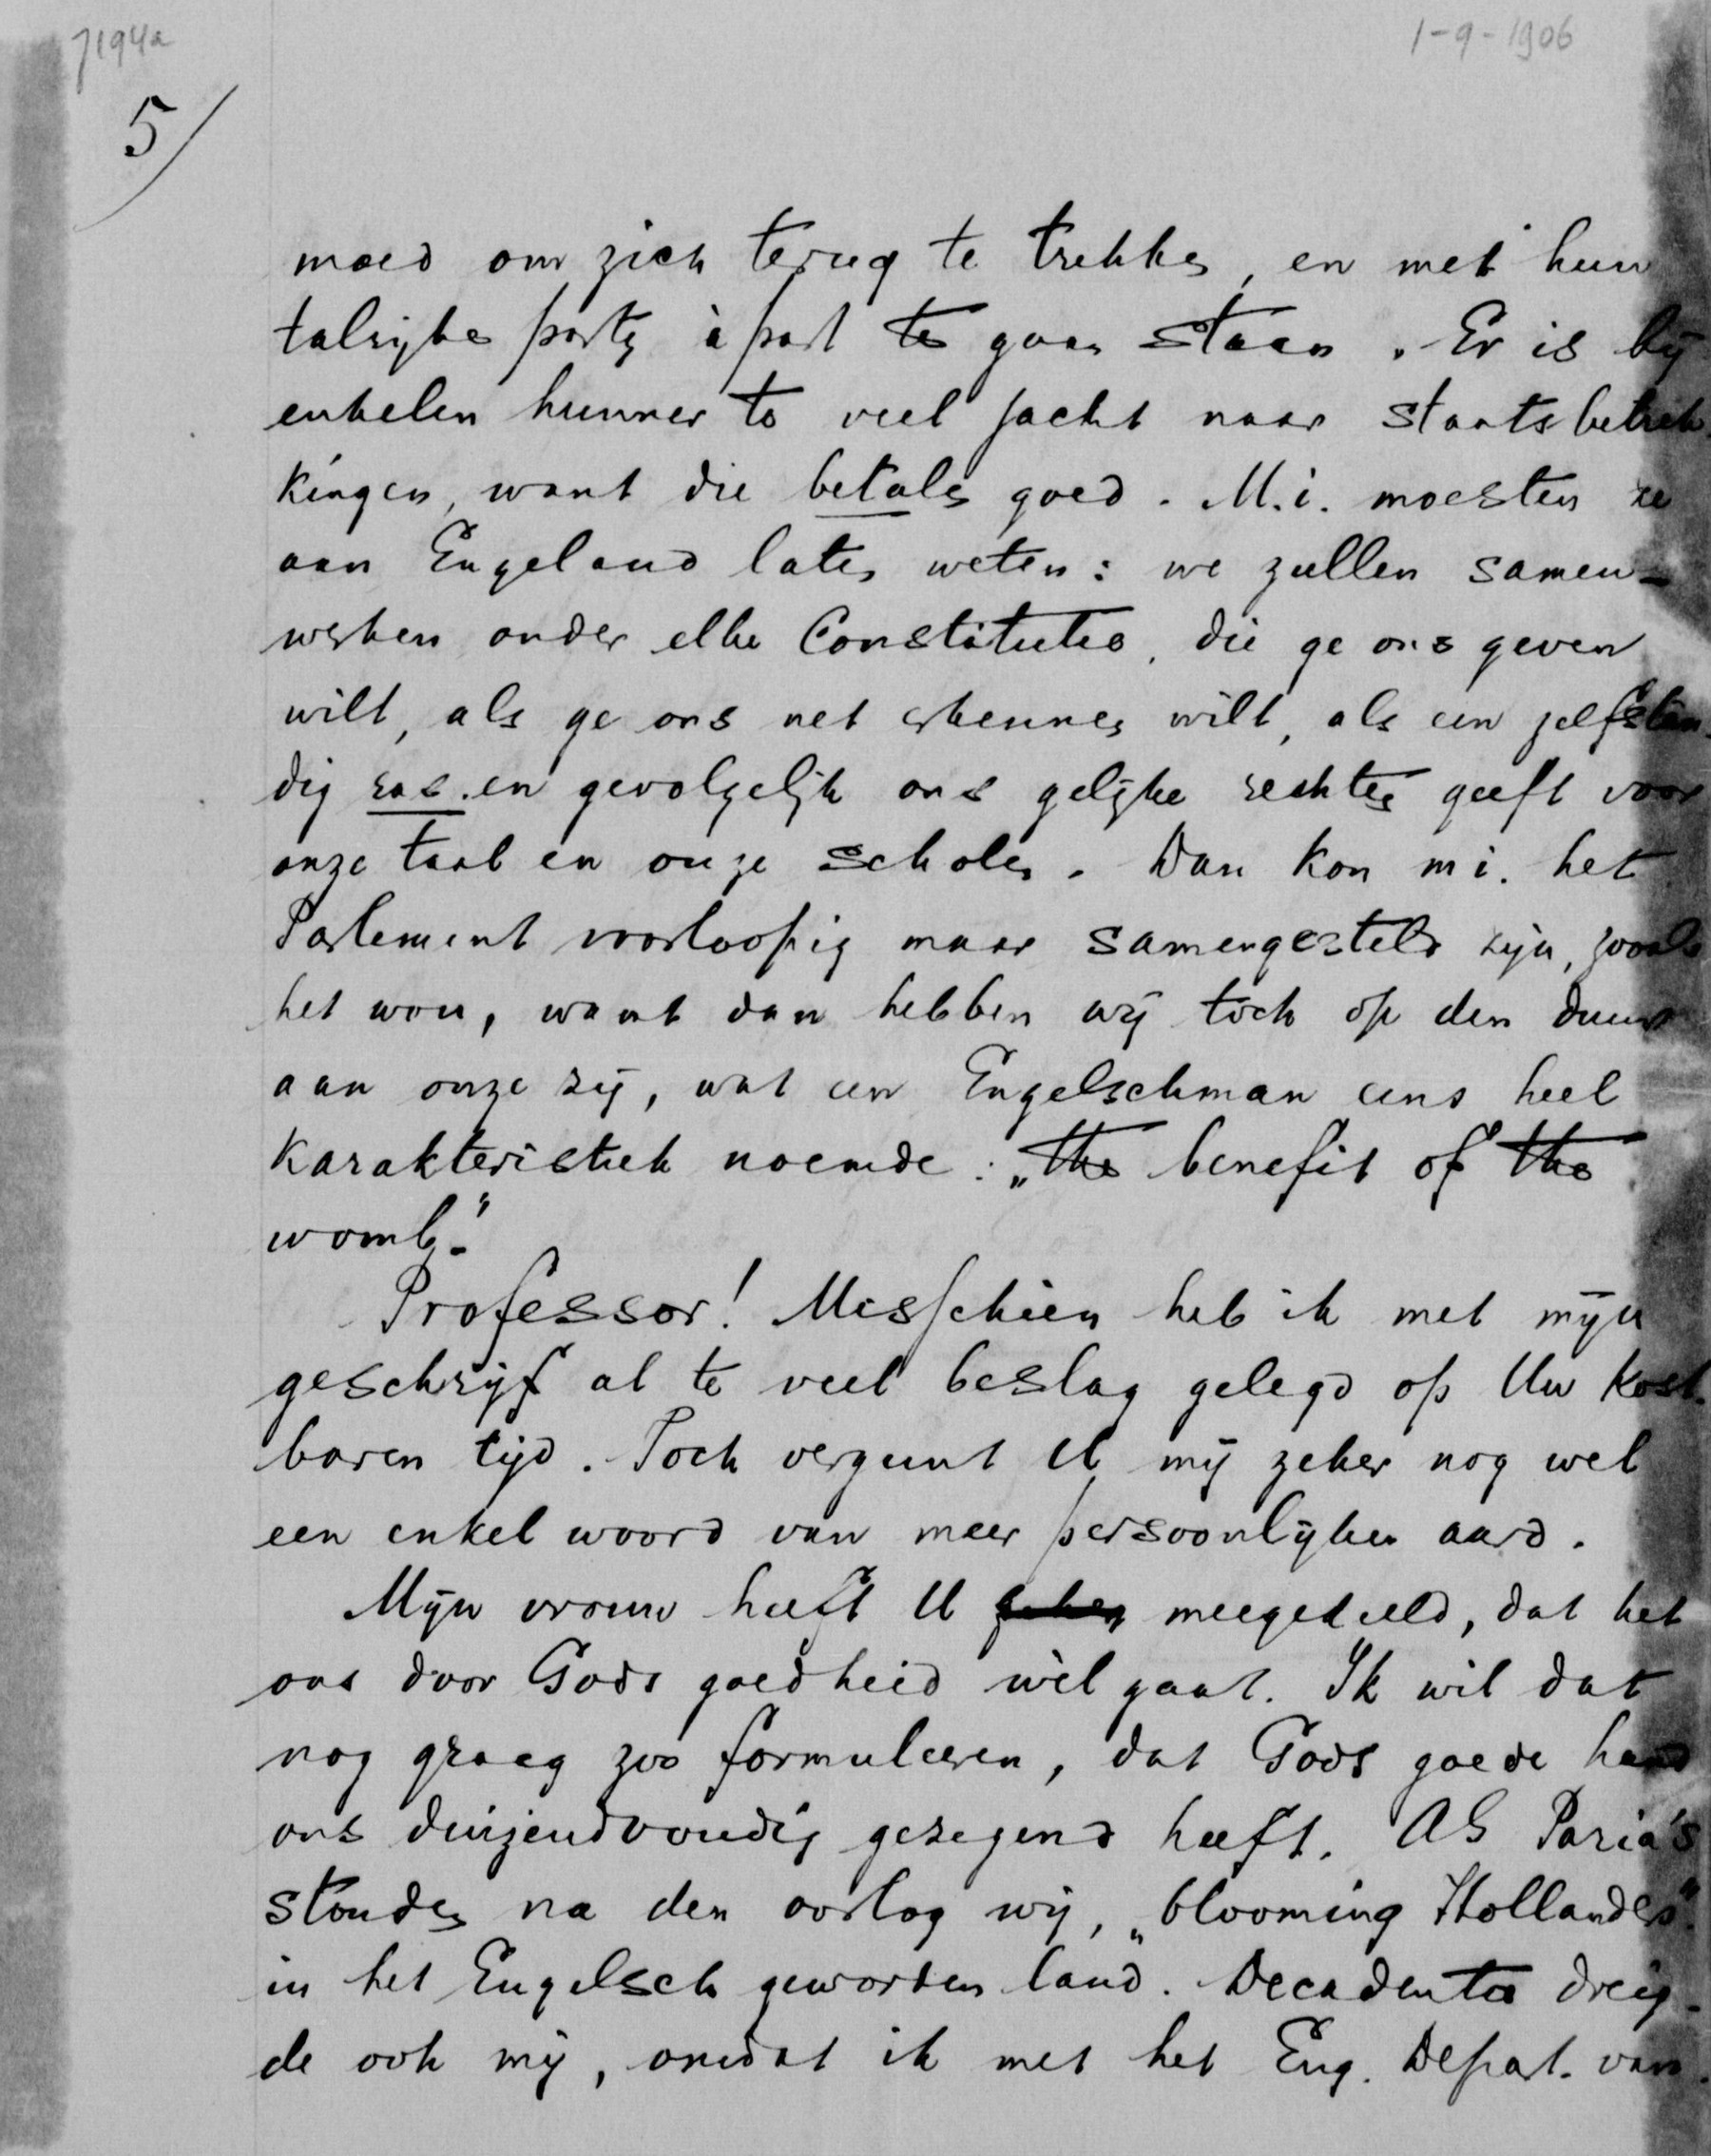 7194a
1-9-1906
5/
moed om zich terug te trekken, en met hun
talrijke partij à part te gaan staan. Er is bij
enkelen hunner te veel jacht naar staatsbetrek-
kingen, want die betalen goed. M.i. moesten ze
aan Engeland laten weten: we zullen samen-
werken onder elke Constitutie, die ge ons geven
wilt, als ge ons net erkennen wilt, als een zelfstan-
dig ras en gevolgelijk ons gelijke rechten geeft voor
onze taal en onze scholen. Dan kon m i. het
Parlement voorloopig maar samengesteld zijn, zooals
het wou, want dan hebben wij toch op den duur
aan onze zij, wat een Engelschman eens heel
karakteristiek noemde: „the benefit of the
womb."
Professor! Misschien heb ik met mijn
geschrijf al te veel beslag gelegd op Uw kost-
baren tijd. Toch vergunt U mij zeker nog wel
een enkel woord van meer persoonlijken aard.
Mijn vrouw heeft U meegedeeld, dat het
ons door Gods goedheid wèl gaat. Ik wil dat
nog graag zoo formuleeren, dat Gods goede hand
ons duizendvoudig gezegend heeft. Als Paria's
stonden na den oorlog wij, „blooming Hollanders"
in het Engelsch geworden land. Decadentie dreig-
de ook mij, omdat ik met het Eng. Depart. van